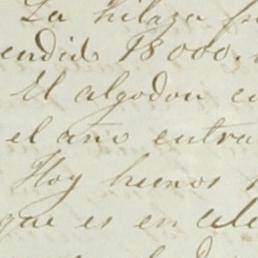 La hilaza
endido 18000.
El algodon
el año entra
Hoy hemos
que es en